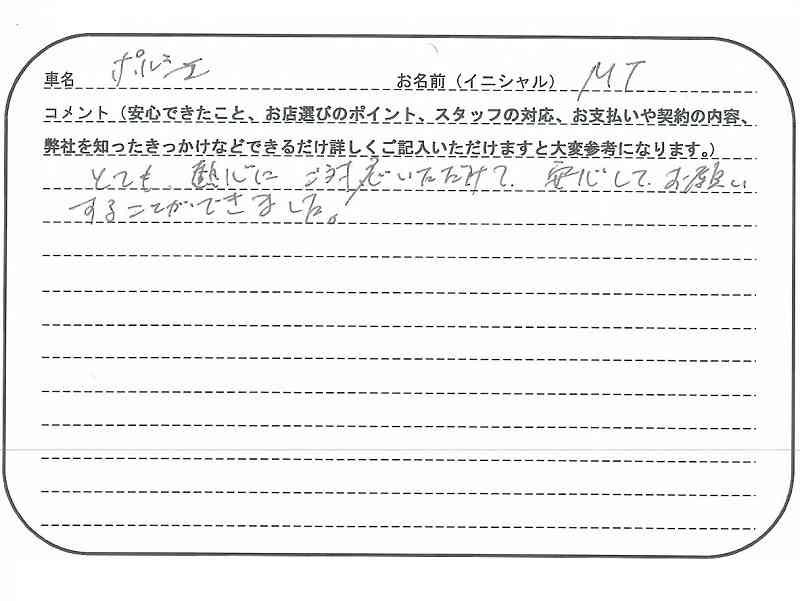 車名 ポルシェ お名前（イニシャル） MT
コメント（安心できたこと、お店選びのポイント、スタッフの対応、お支払いや契約の内容、
弊社を知ったきっかけなどできるだけ詳しくご記入いただけますと大変参考になります。）
とても、熱心に ご対応いただけて、安心して、お願い
することができました。